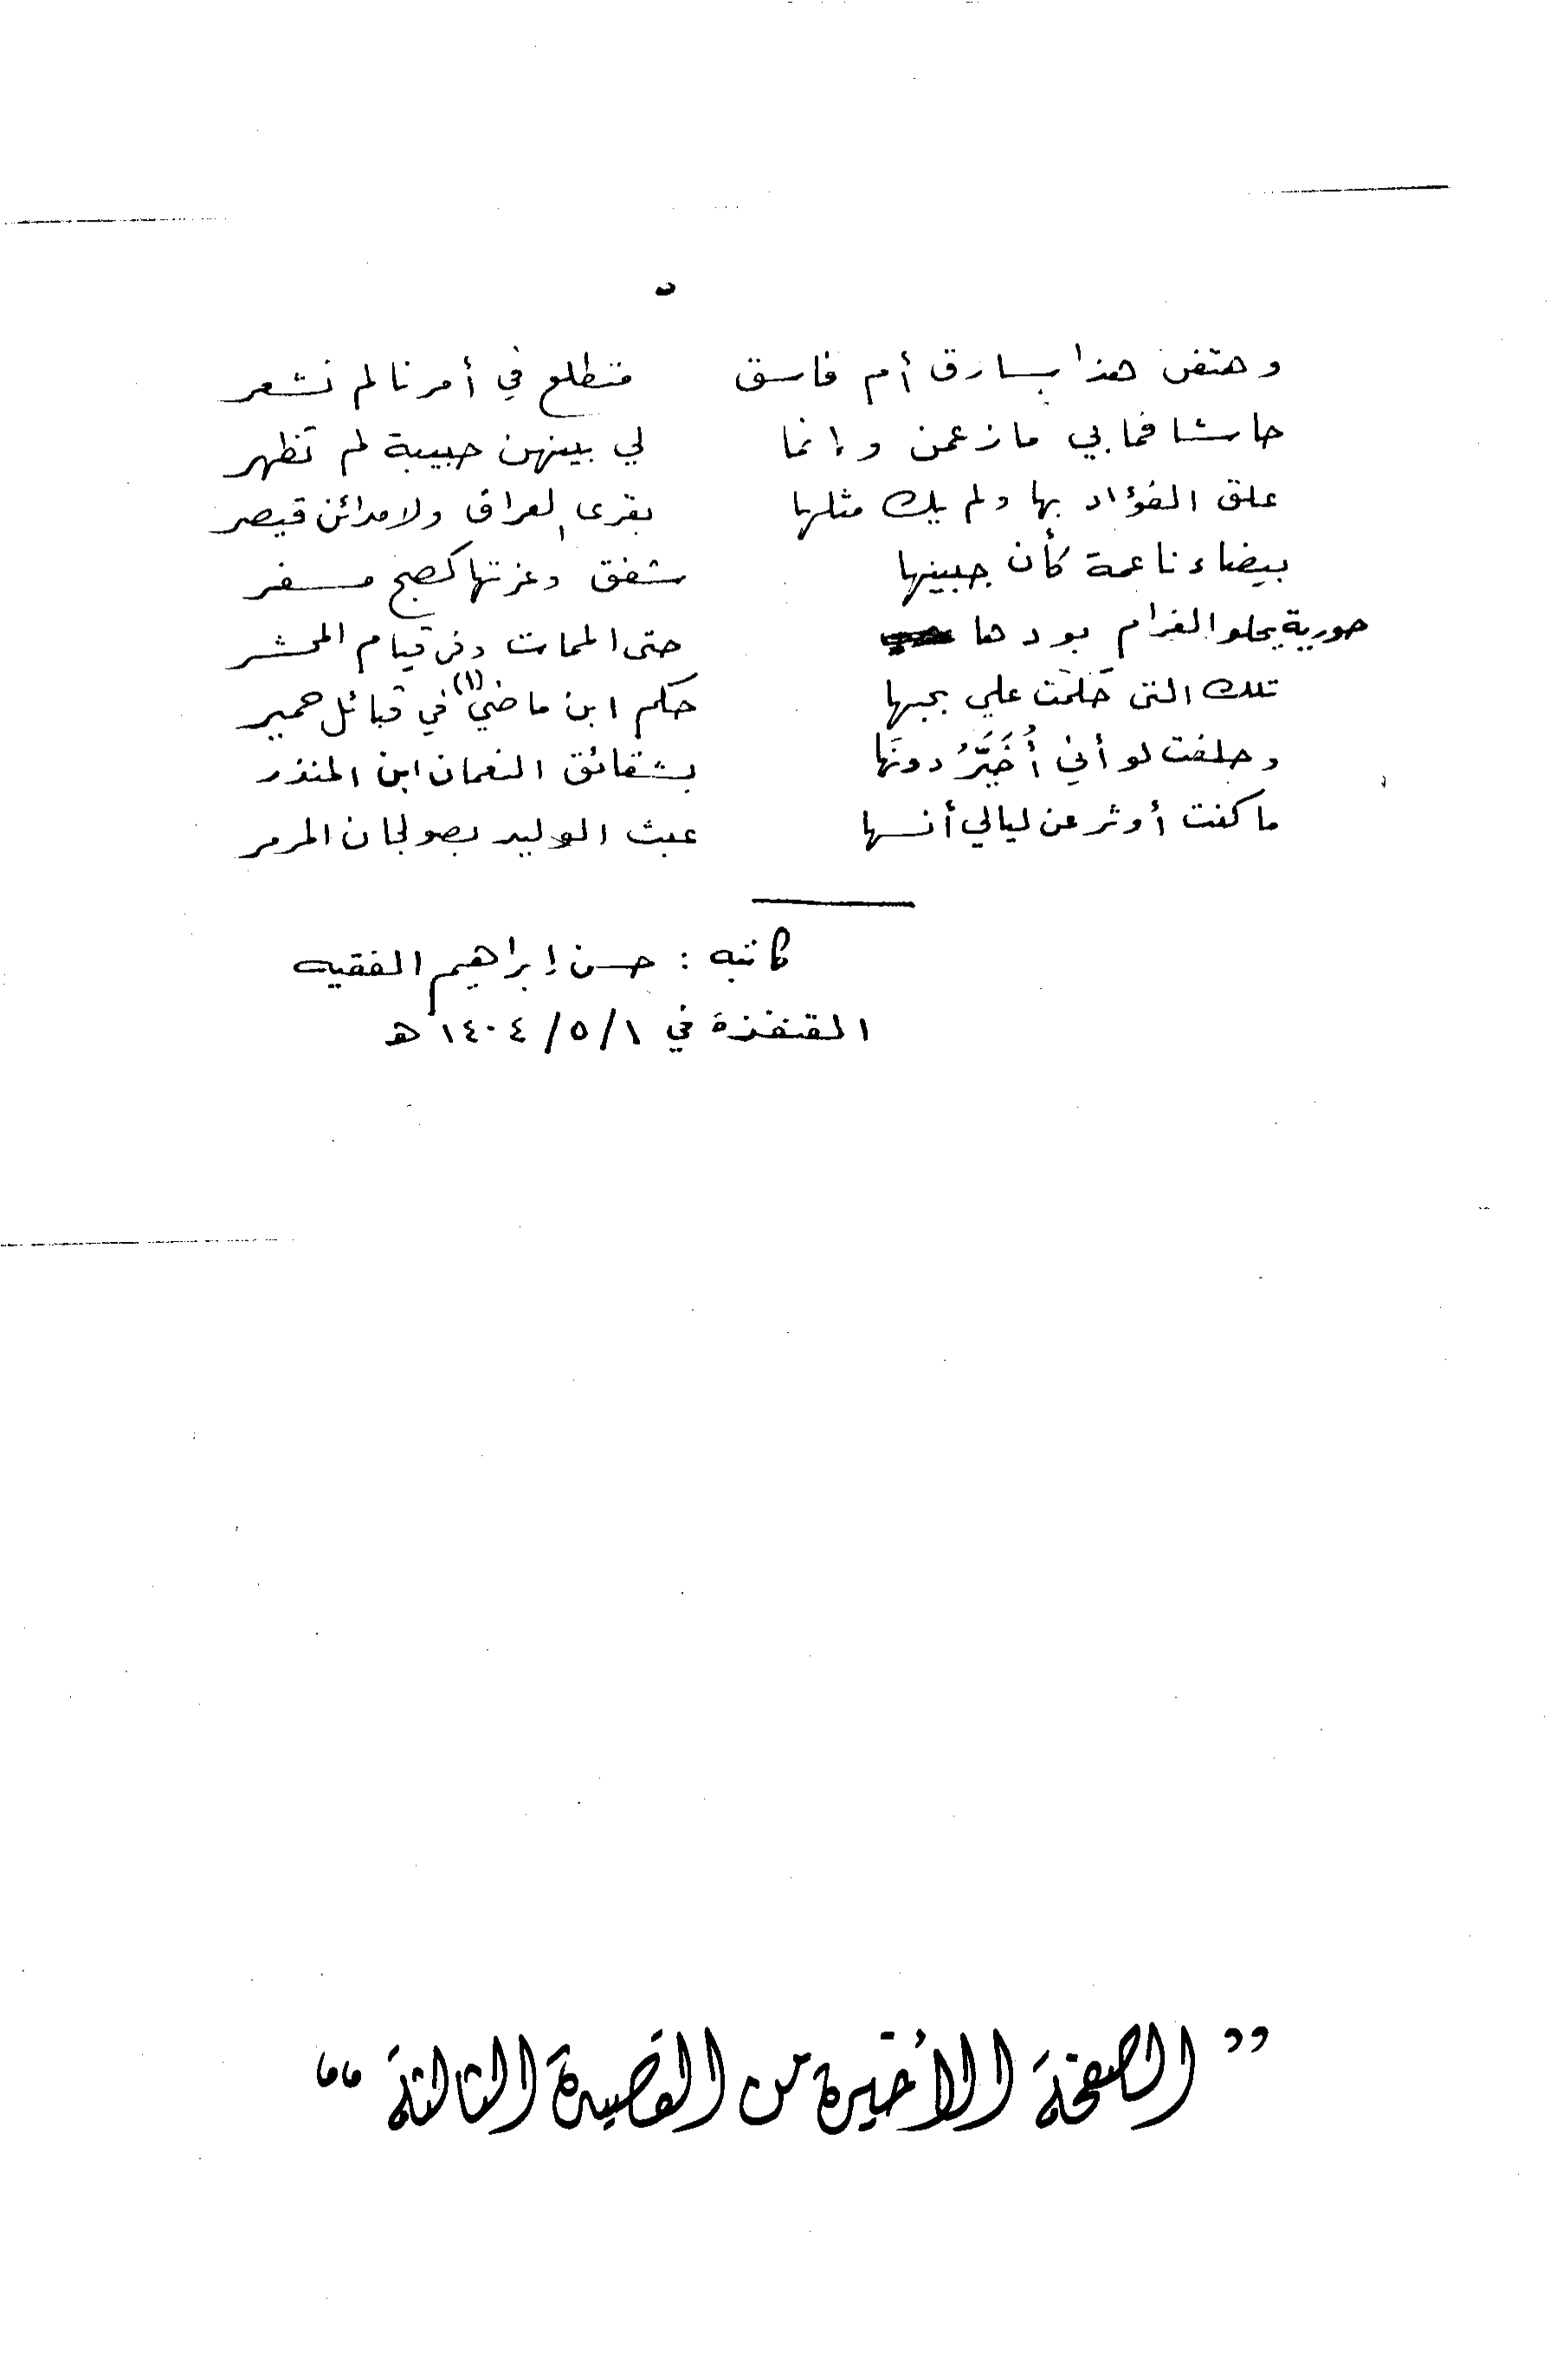 وهتفن هذا سارق أم فاسق متطلع في أمرنا لم نشعر
حاشا فما بي ما زعمن وإنما لي بينهن حبيبة لم تظهر
علق الفؤاد بها ولم يك مثلها بقرى العراق ولا مدائن قيصر
بيضاء ناعمة كأن جبينها شفق وغرتها كصبح مسفر
حورية يحلو الغرام بودها حتى الممات وفي قيام المحشر
تلك التي حَكَمَت علي بحبها حكم ابن ماضي (١) في قبائل حمير
وحلفت لو أني أُخَيَّرُ دونَها بشقائق النعمان ابن المنذر
ما كنت أوثر عن ليالي أنسها عبث الوليد بصولجان المرمر
كاتبه : حسن إبراهيم الفقيه
القنفذة في ١/٥/١٤٠٤ هـ
"الصفحة الأخيرة من القصيدة الثالثة"